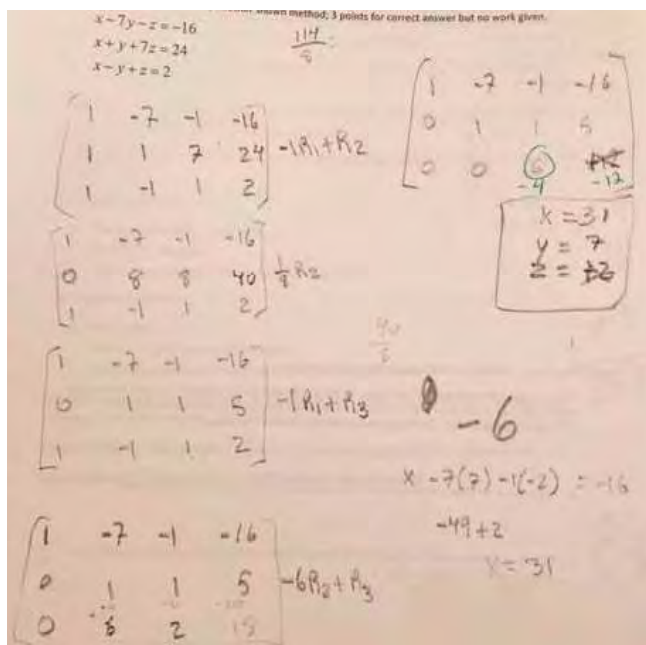 shown method; 3 points for correct answer but no work given.
x-7y-z=-16
x+y+7z=24
x-y+z=2
114
1 -7 -1 -16
1 1 7 24
1 -1 1 2
-1R1+R2
1 -7 -1 -16
0 8 8 40
1 -1 1 2
1/8 R2
1 -7 -1 -16
0 1 1 5
1 -1 1 2
-1R1+R3
1 -7 -1 -16
0 1 1 5
0 6 2 18
-6R2+R3
1 -7 -1 -16
0 1 1 5
0 0
-4 -12
x=31
y=7
z=
40
-6
x -7(7) -1(-2) = -16
-49+2
x=31